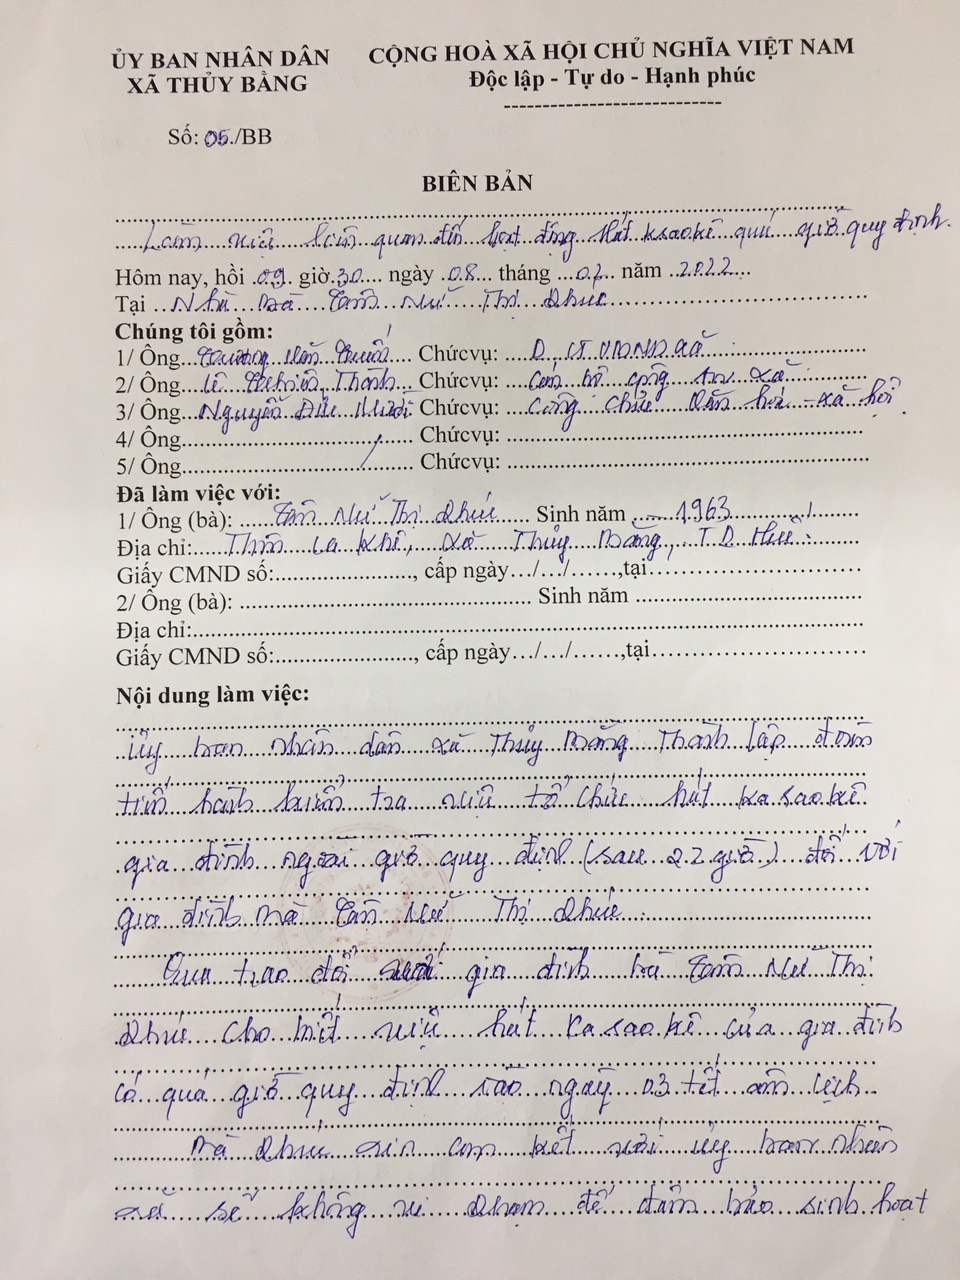 ỦY BAN NHÂN DÂN
XÃ THỦY BẰNG
CỘNG HOÀ XÃ HỘI CHỦ NGHĨA VIỆT NAM
Độc lập - Tự do - Hạnh phúc
Số: 05./BB
BIÊN BẢN
Làm việc liên quan đến hoạt động hát karaokê quá giờ quy định.
Hôm nay, hồi 09 giờ 30 ngày 08 tháng 02 năm 2022
Tại Nhà bà Nữ Thị
Chúng tôi gồm:
1/ Ông Trương Văn Chức vụ: UBND xã
2/ Ông Lê Thành Chức vụ: Cán bộ công an xã
3/ Ông Nguyễn Đức Chức vụ: Công chức Văn hoá - xã hội
4/ Ông Chức vụ:
5/ Ông Chức vụ:
Đã làm việc với:
1/ Ông (bà): Nữ Thị Sinh năm 1963
Địa chỉ: Thôn La Khê, xã Thủy Bằng, TP Huế.
Giấy CMND số:, cấp ngày…/…/……,tại
2/ Ông (bà): Sinh năm
Địa chỉ:
Giấy CMND số:, cấp ngày…/…/……,tại
Nội dung làm việc:
Ủy ban nhân dân xã Thủy Bằng Thành lập đoàn
tiến hành kiểm tra việc tổ chức hát karaokê
gia đình ngoài giờ quy định (sau 22 giờ) đối với
gia đình bà Nữ Thị
Qua trao đổi gia đình bà Nữ Thị
cho biết việc hát karaokê của gia đình
có quá giờ quy định vào ngày 03 tết âm lịch
Bà xin cam kết với Ủy ban nhân
xã sẽ không vi phạm để đảm bảo sinh hoạt